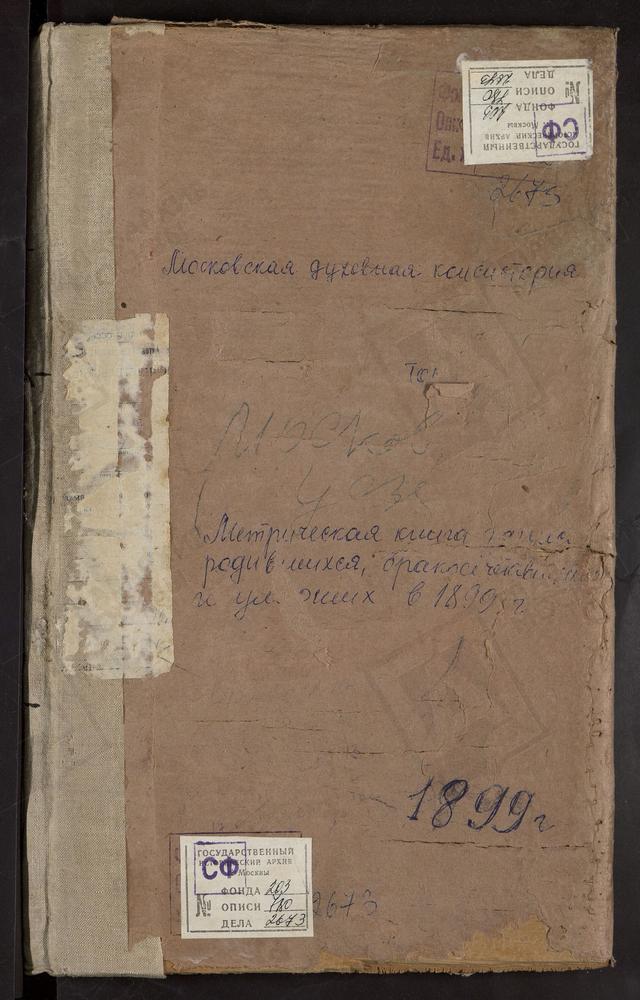 2673
Московская духовная консистория
Москов
уез
Метрическая книга записи
родившихся, бракосочетавшихся
и умерших в 1899 г
1899 г
ГОСУДАРСТВЕННЫЙ
ИСТОРИЧЕСКИЙ АРХИВ
г. Москвы
СФ
№ ФОНДА 203
ОПИСИ 780
ДЕЛА 2673
2673
ГОСУДАРСТВЕННЫЙ
ИСТОРИЧЕСКИЙ АРХИВ
г. Москвы
СФ
№ ФОНДА 203
ОПИСИ 780
ДЕЛА 2673
Ед.